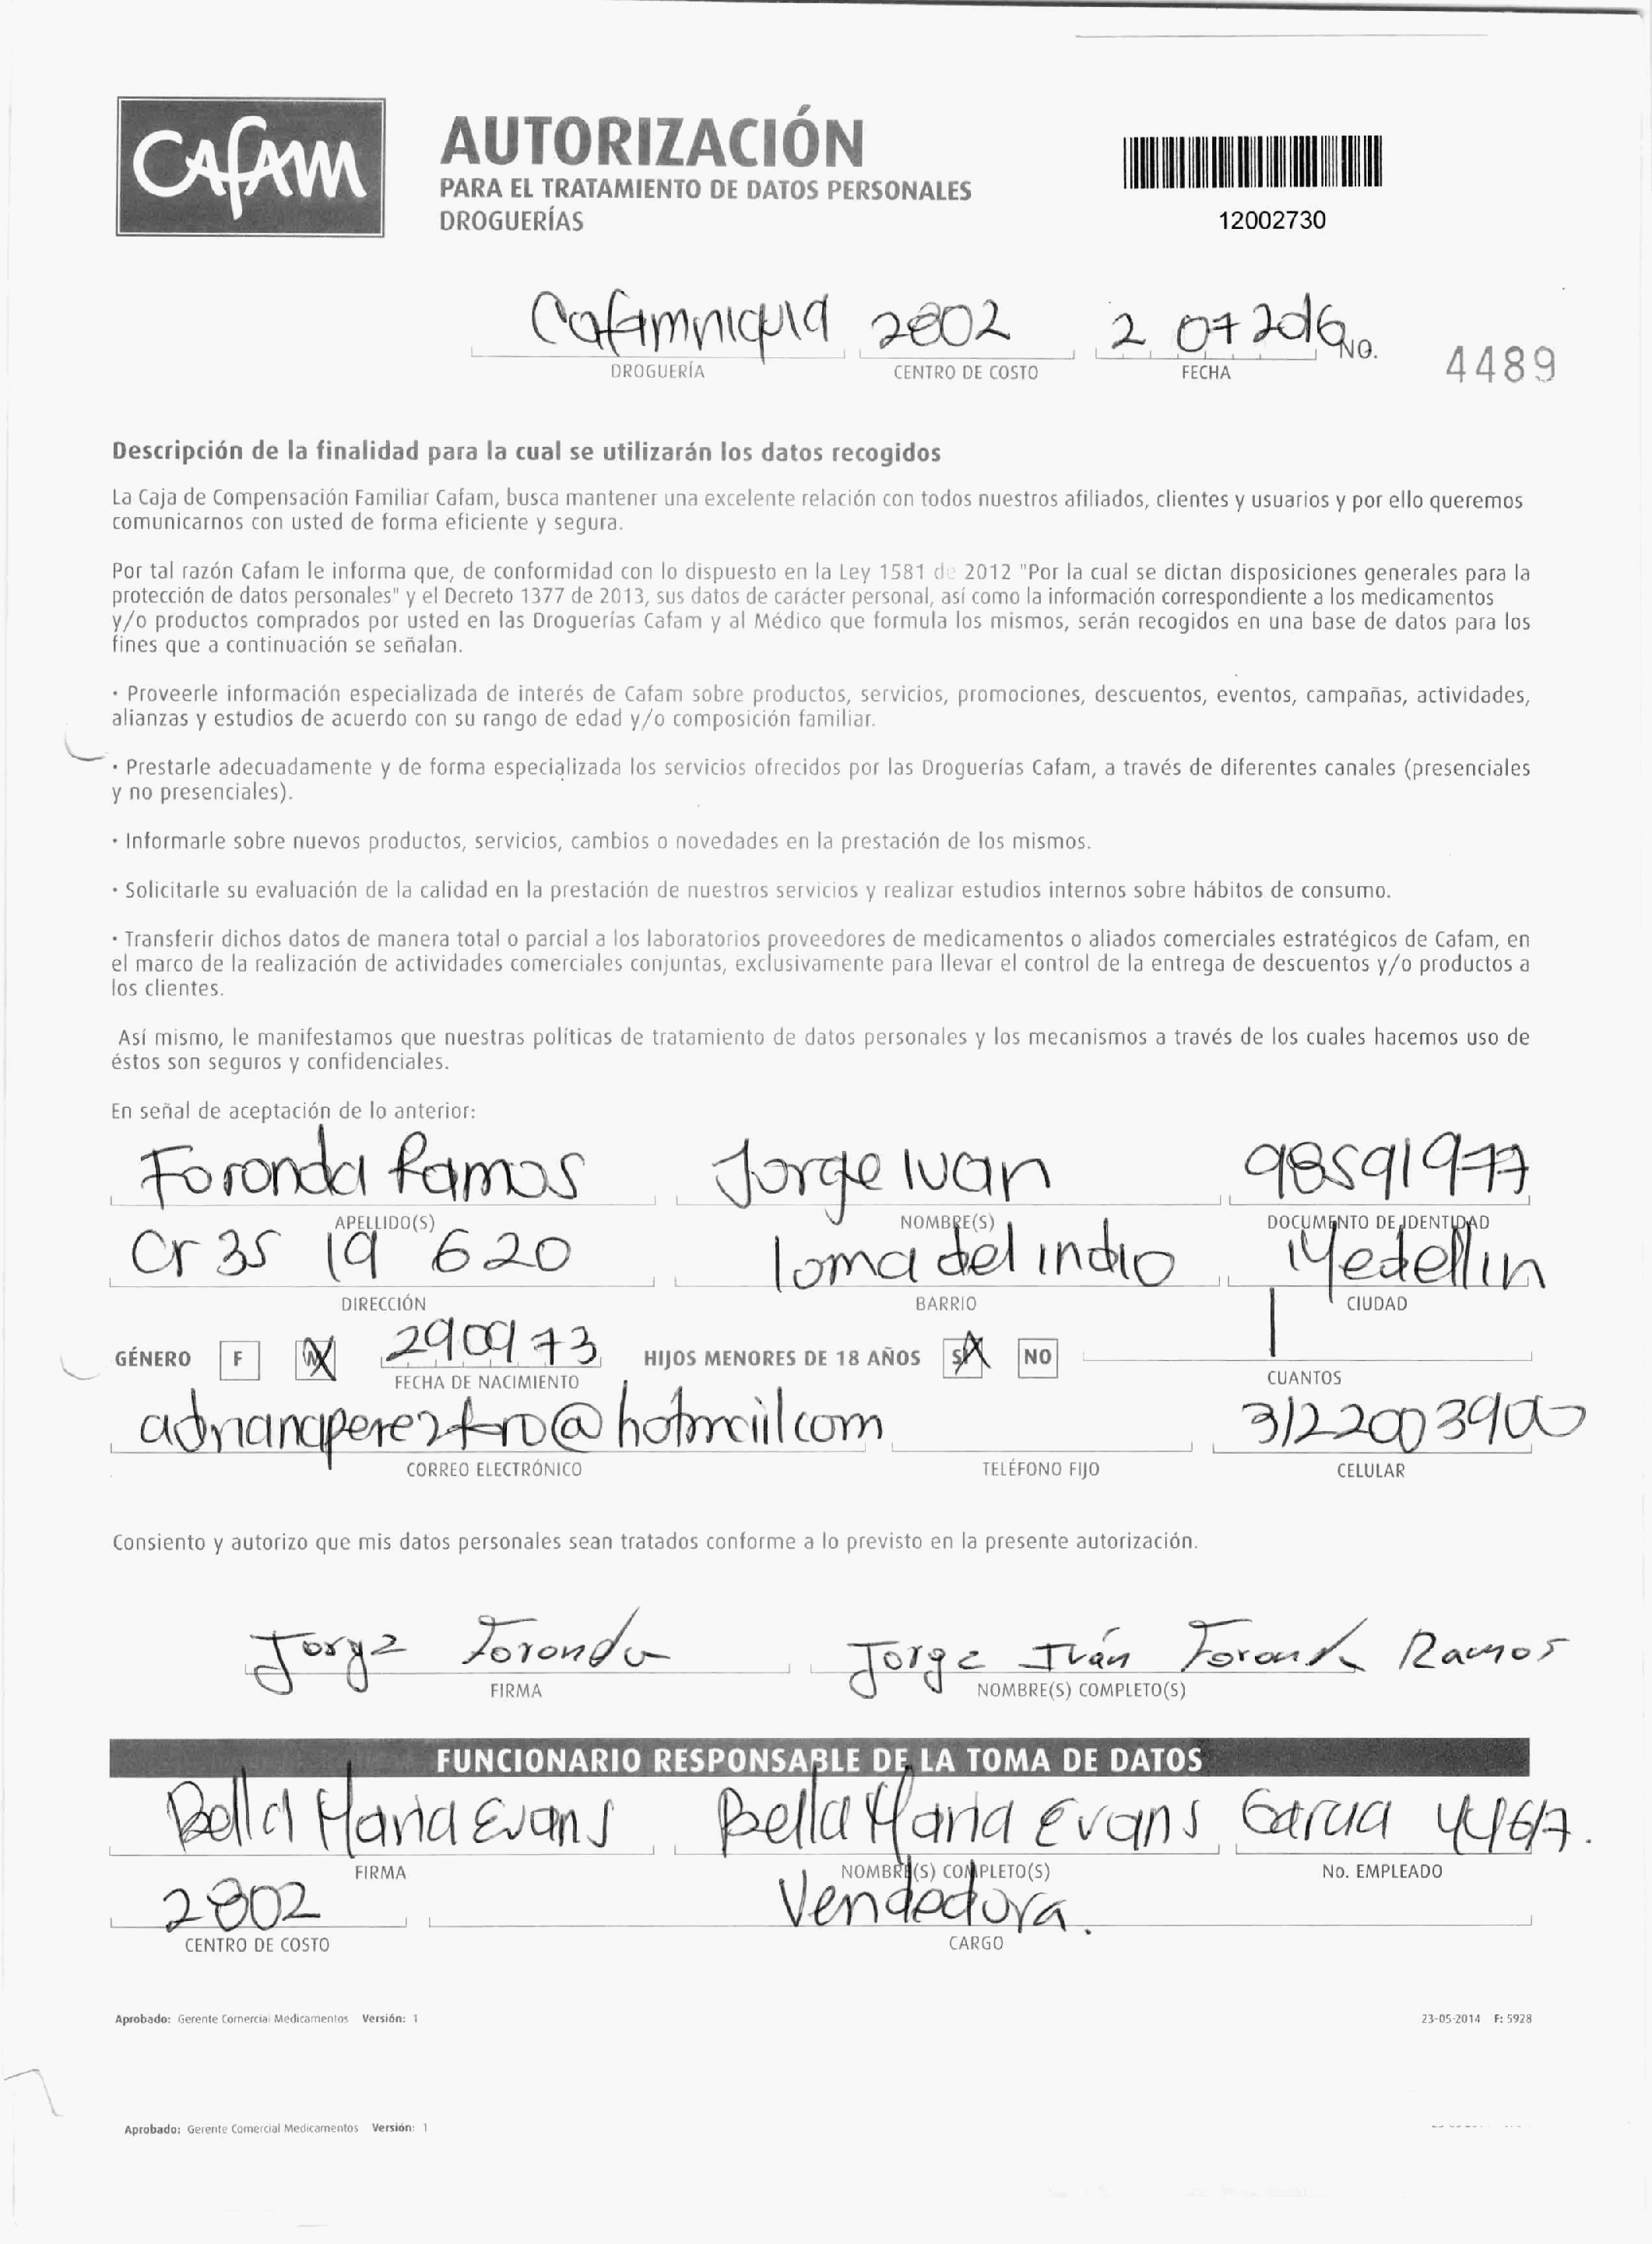 CAFAM
AUTORIZACIÓN
PARA EL TRATAMIENTO DE DATOS PERSONALES
DROGUERÍAS
12002730
Cafamniquia 2802 2 07 2016 No. 4489
DROGUERÍA CENTRO DE COSTO FECHA
Descripción de la finalidad para la cual se utilizarán los datos recogidos
La Caja de Compensación Familiar Cafam, busca mantener una excelente relación con todos nuestros afiliados, clientes y usuarios y por ello queremos
comunicarnos con usted de forma eficiente y segura.
Por tal razón Cafam le informa que, de conformidad con lo dispuesto en la Ley 1581 de 2012 "Por la cual se dictan disposiciones generales para la
protección de datos personales" y el Decreto 1377 de 2013, sus datos de carácter personal, así como la información correspondiente a los medicamentos
y/o productos comprados por usted en las Droguerías Cafam y al Médico que formula los mismos, serán recogidos en una base de datos para los
fines que a continuación se señalan.
· Proveerle información especializada de interés de Cafam sobre productos, servicios, promociones, descuentos, eventos, campañas, actividades,
alianzas y estudios de acuerdo con su rango de edad y/o composición familiar.
· Prestarle adecuadamente y de forma especializada los servicios ofrecidos por las Droguerías Cafam, a través de diferentes canales (presenciales
y no presenciales).
· Informarle sobre nuevos productos, servicios, cambios o novedades en la prestación de los mismos.
· Solicitarle su evaluación de la calidad en la prestación de nuestros servicios y realizar estudios internos sobre hábitos de consumo.
· Transferir dichos datos de manera total o parcial a los laboratorios proveedores de medicamentos o aliados comerciales estratégicos de Cafam, en
el marco de la realización de actividades comerciales conjuntas, exclusivamente para llevar el control de la entrega de descuentos y/o productos a
los clientes.
Así mismo, le manifestamos que nuestras políticas de tratamiento de datos personales y los mecanismos a través de los cuales hacemos uso de
éstos son seguros y confidenciales.
En señal de aceptación de lo anterior:
Foronda Ramos Jorge Ivan 98591977
APELLIDO(S) NOMBRE(S) DOCUMENTO DE IDENTIDAD
Cr 35 19 620 loma del indio Medellin
DIRECCIÓN BARRIO CIUDAD
GÉNERO F M 290973 HIJOS MENORES DE 18 AÑOS SI NO 1
FECHA DE NACIMIENTO CUANTOS
3122003900
CORREO ELECTRÓNICO TELÉFONO FIJO CELULAR
Consiento y autorizo que mis datos personales sean tratados conforme a lo previsto en la presente autorización.
Jorge Foronda Jorge Iván Foronda Ramos
FIRMA NOMBRE(S) COMPLETO(S)
FUNCIONARIO RESPONSABLE DE LA TOMA DE DATOS
Bella Maria Evans Bella Maria Evans Garcia 44617.
FIRMA NOMBRE(S) COMPLETO(S) No. EMPLEADO
2802 Vendedora.
CENTRO DE COSTO CARGO
Aprobado: Gerente Comercial Medicamentos Versión: 1 23-05-2014 F: 5928
Aprobado: Gerente Comercial Medicamentos Versión: 1